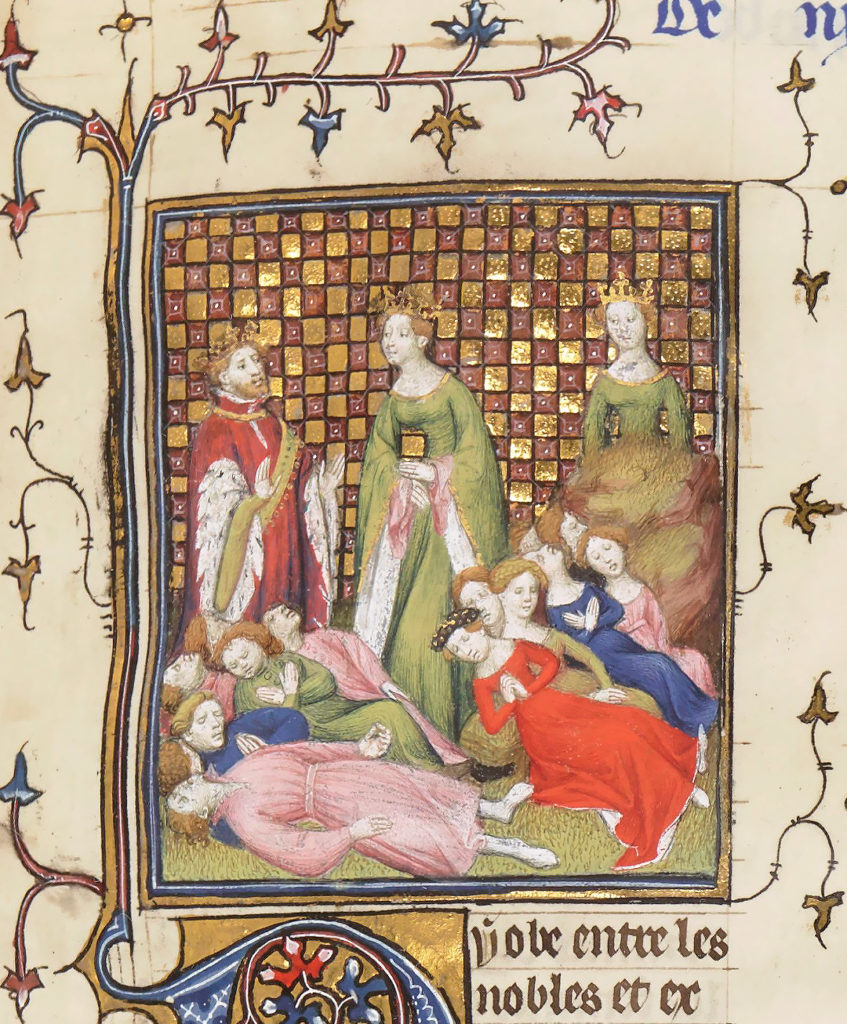 De
yobe entre les
nobles et ex